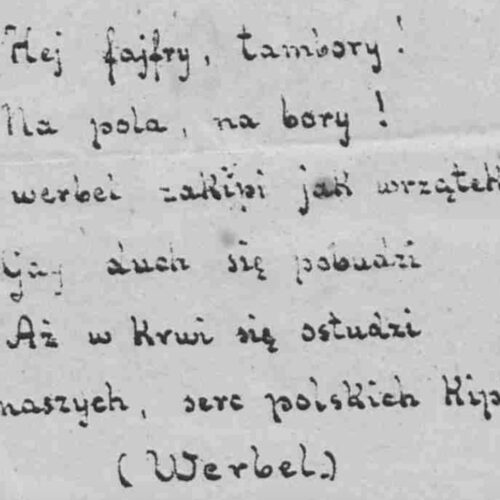 Hej fajfry, tambory!
Na pola, na bory!
werbel zakipi jak wrzątek
Gdy duch się pobudzi
Aż w krwi się ostudzi
naszych, serc polskich Kip
(Werbel.)